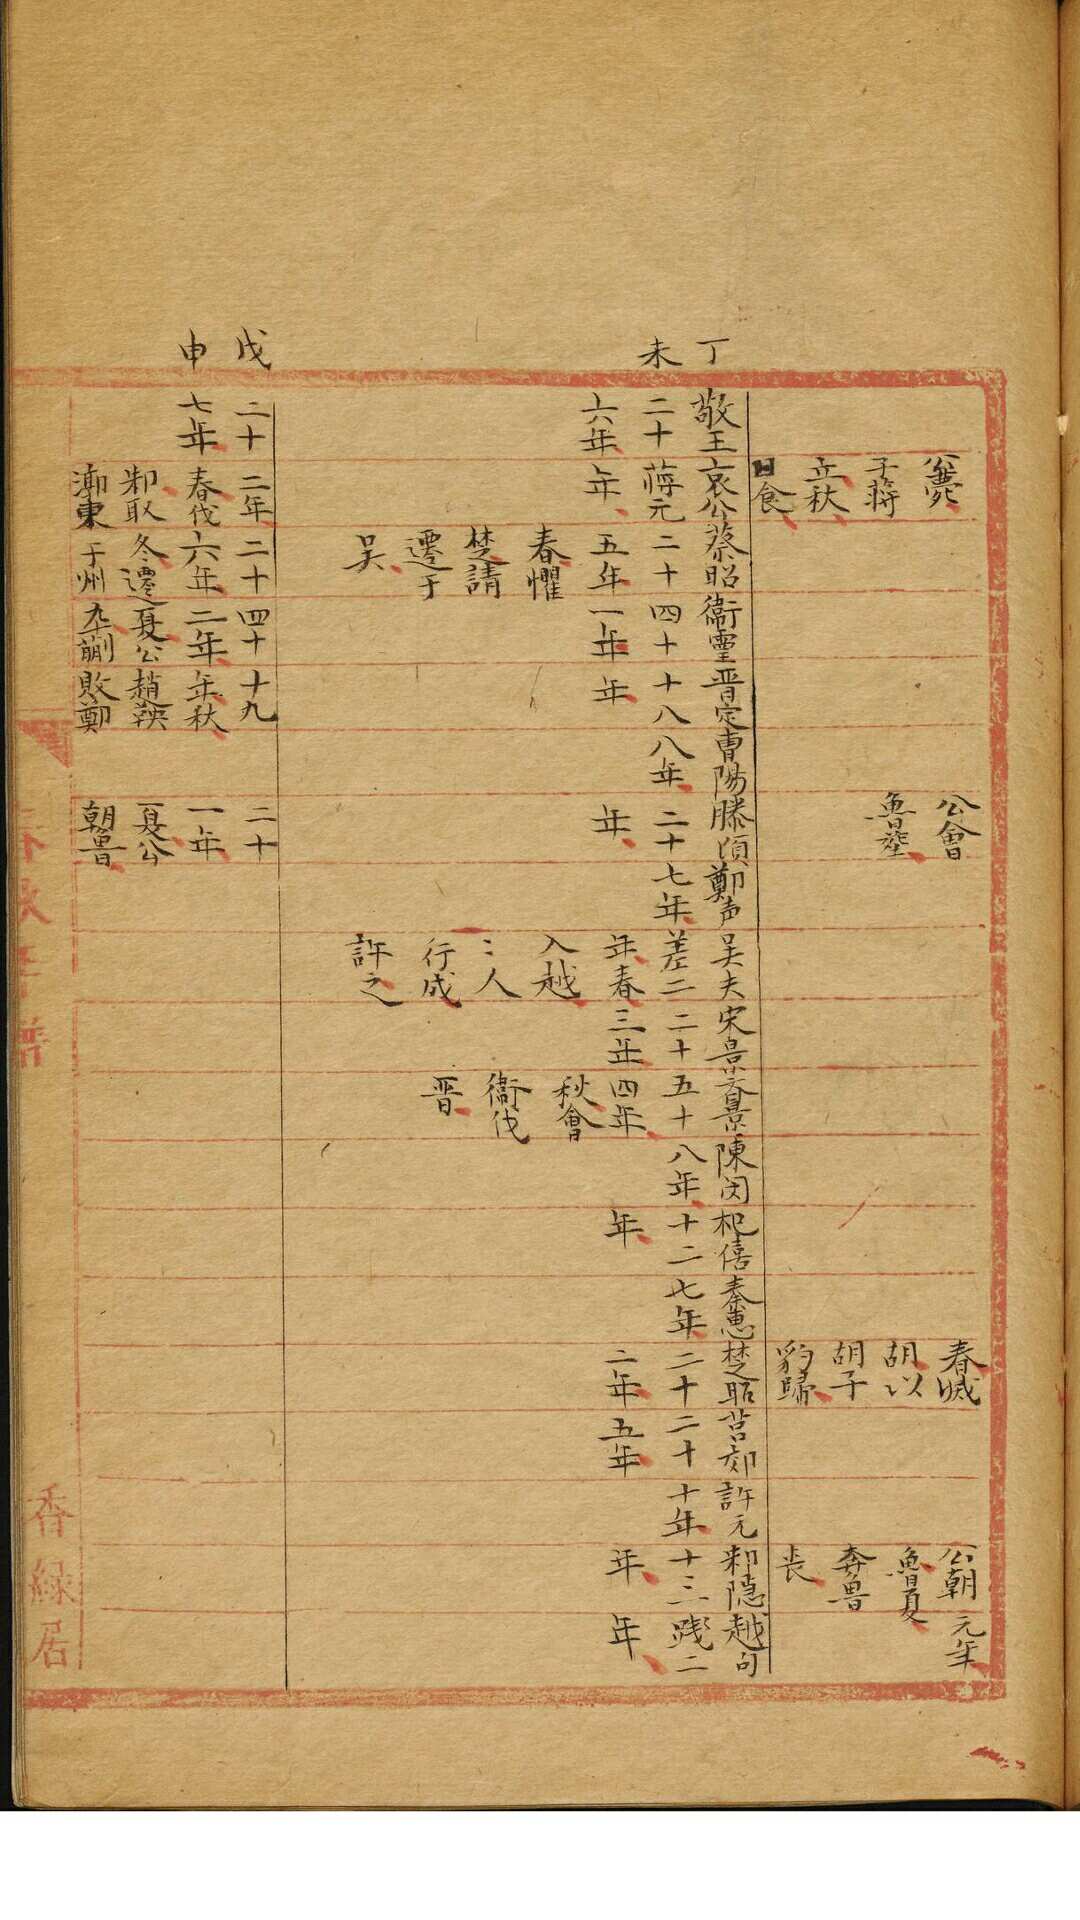 公薨 公會 春滅 公朝 元年
子蔣 魯 胡以 魯夏
立秋 胡子 奔魯
日食 豹歸 喪
丁未
敬王哀公蔡昭衞靈晋定曹陽滕頃鄭声吴夫宋景斉景陳閔杞僖秦惠楚昭莒郊許元邾隐越句
二十蔣元二十四十十八八年二十七年差二二十五十八年十二七年二十二十十年十三踐二
六年年五年一年年 年 年春三年四年 年 二年五年 年年
春懼 入越 秋會
楚請 :人 衞伐
遷于 行成 晋
吴 許之
戊申
二十二年二十四十十九 二十
七年春伐六年二年年秋 一年
邾取冬遷夏公趙鞅 夏公
漷東于州卒蒯敗鄭 朝魯
香緑居